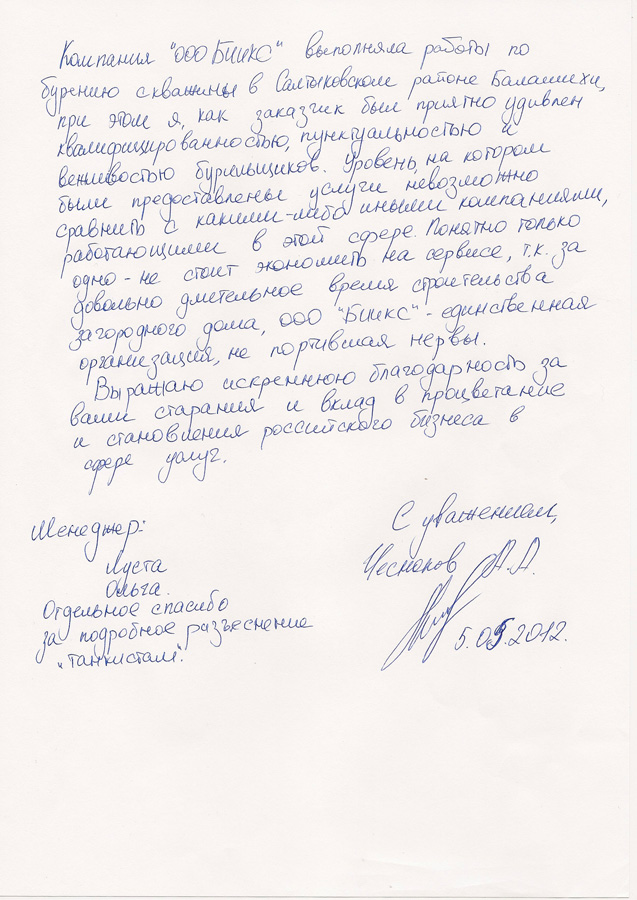 Компания "ООО БИИКС" выполняла работы по
бурению скважины в Салтыковском районе Балашихи,
при этом я, как заказчик был приятно удивлен
квалифицированностью, пунктуальностью и
вежливостью бурильщиков. Уровень, на котором
были предоставлены услуги невозможно
сравнить с какими-либо иными компаниями,
работающими в этой сфере. Понятно только
одно - не стоит экономить на сервисе, т.к. за
довольно длительное время строительства
загородного дома, ООО "БИИКС" - единственная
организация, не портившая нервы.
Выражаю искреннюю благодарность за
ваши старания и вклад в процветание
и становления российского бизнеса в
сфере услуг.
С уважением,
Чесноков А.А.
5.05.2012.
Менеджер:
Луста
Ольга.
Отдельное спасибо
за подробное разъеснение
"танкистам".